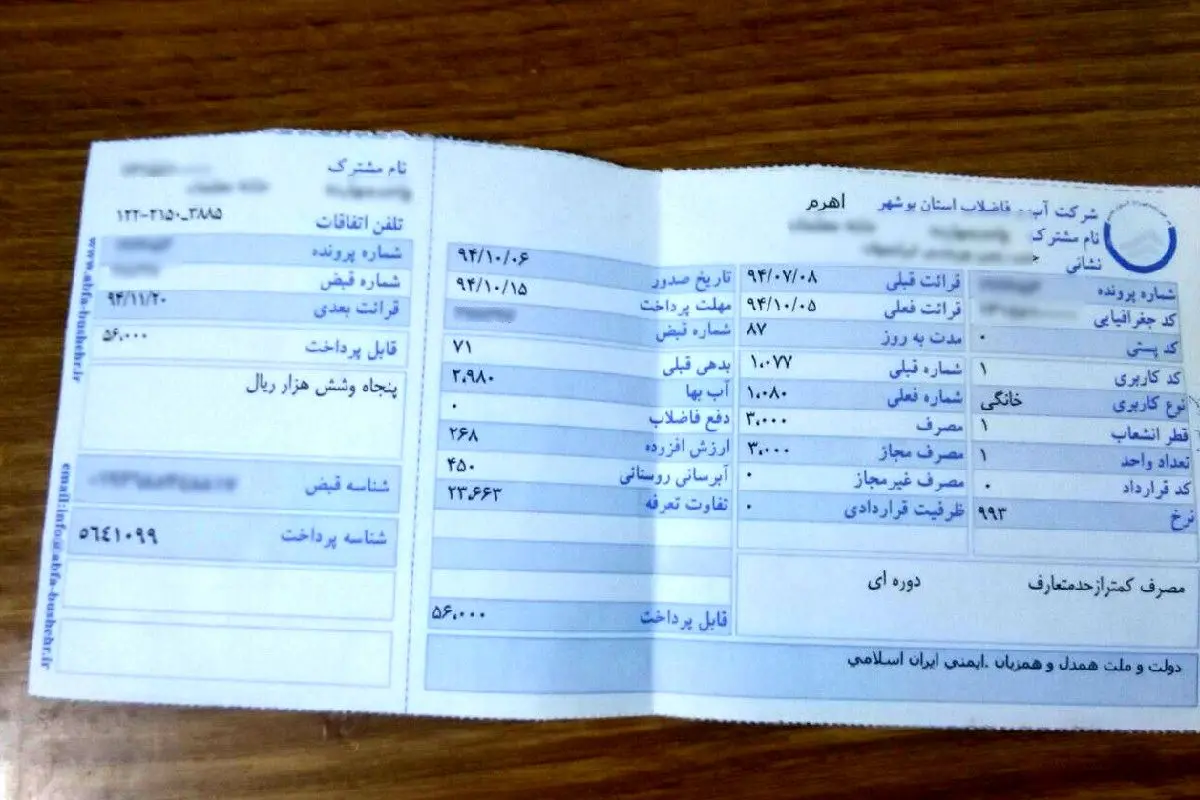 شرکت آب و فاضلاب استان بوشهر اهرم
نام مشترک
نشانی
شماره پرونده
کد جغرافیایی
کد پستی ۰
کد کاربری ۱
نوع کاربری خانگی
قطر انشعاب ۱
تعداد واحد ۱
کد قرارداد ۰
نرخ ۹۹۳
قرائت قبلی ۹۴/۰۷/۰۸
قرائت فعلی ۹۴/۱۰/۰۵
مدت به روز ۸۷
شماره قبلی ۱،۰۷۷
شماره فعلی ۱،۰۸۰
مصرف ۳،۰۰۰
مصرف مجاز ۳،۰۰۰
مصرف غیرمجاز ۰
ظرفیت قراردادی ۰
تاریخ صدور ۹۴/۱۰/۰۶
مهلت پرداخت ۹۴/۱۰/۱۵
شماره قبض
بدهی قبلی ۷۱
آب بها ۲،۹۸۰
دفع فاضلاب ۰
ارزش افزرده ۲۶۸
آبرسانی روستائی ۴۵۰
تفاوت تعرفه ۲۳،۶۶۳
قابل پرداخت ۵۶،۰۰۰
مصرف کمترازحدمتعارف دوره ای
دولت و ملت همدل و همزبان .ایمنی ایران اسلامی
نام مشترک
تلفن اتفاقات ۱۲۲-۲۶۵۰_۳۸۸۵
شماره پرونده
شماره قبض
قرائت بعدی ۹۴/۱۱/۲۰
قابل پرداخت ۵۶،۰۰۰
پنجاه وشش هزار ریال
شناسه قبض
شناسه پرداخت ۵۶٤۱۰۹۹
www.abfa-bushehr.ir
email:info@abfa-bushehr.ir